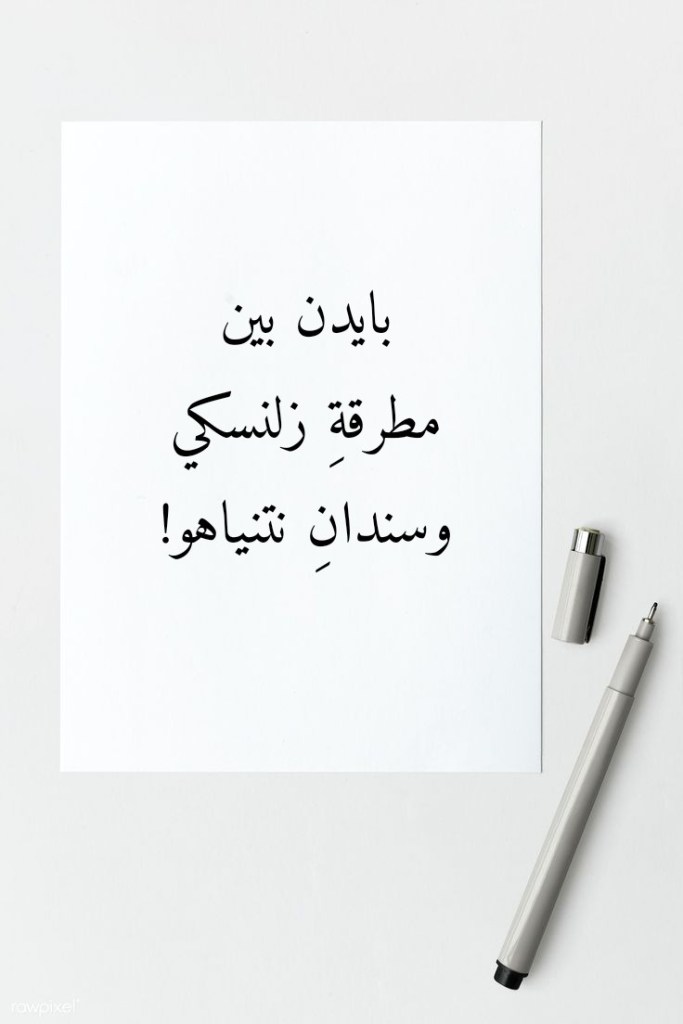 بايدن بين
مطرقةِ زلنسكي
وسندانِ نتنياهو!
rawpixel